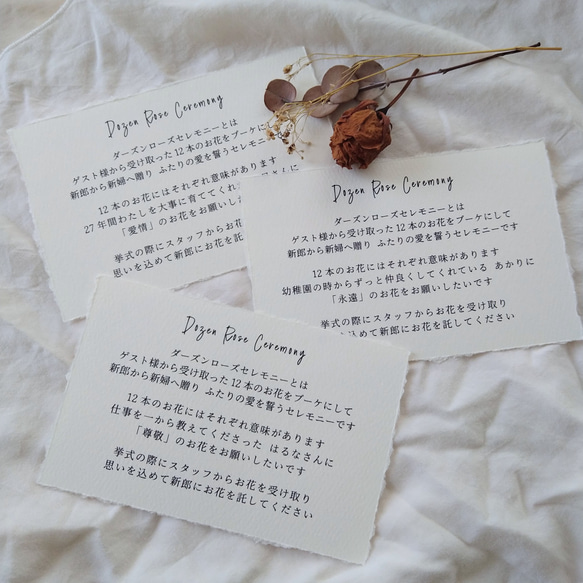 Dozen Rose Ceremony
ダーズンローズセレモニーとは
ゲスト様から受け取った12本のお花をブーケに
新郎から新婦へ贈り ふたりの愛を誓うセレモニー
12本のお花にはそれぞれ意味があります
27年間わたしを大事に育ててくれ さんに
「愛情」のお花をお願いし
挙式の際にスタッフからお花
思いを込めて新郎にお花を託
Dozen Rose Ceremony
ダーズンローズセレモニーとは
ゲスト様から受け取った12本のお花をブーケにして
新郎から新婦へ贈り ふたりの愛を誓うセレモニーです
12本のお花にはそれぞれ意味があります
幼稚園の時からずっと仲良くしてくれている あかりに
「永遠」のお花をお願いしたいです
挙式の際にスタッフからお花を受け取り
を込めて新郎にお花を託してください
Dozen Rose Ceremony
ダーズンローズセレモニーとは
ゲスト様から受け取った12本のお花をブーケにして
新郎から新婦へ贈り ふたりの愛を誓うセレモニーです
12本のお花にはそれぞれ意味があります
仕事を一から教えてくださった はるなさんに
「尊敬」のお花をお願いしたいです
挙式の際にスタッフからお花を受け取り
思いを込めて新郎にお花を託してください